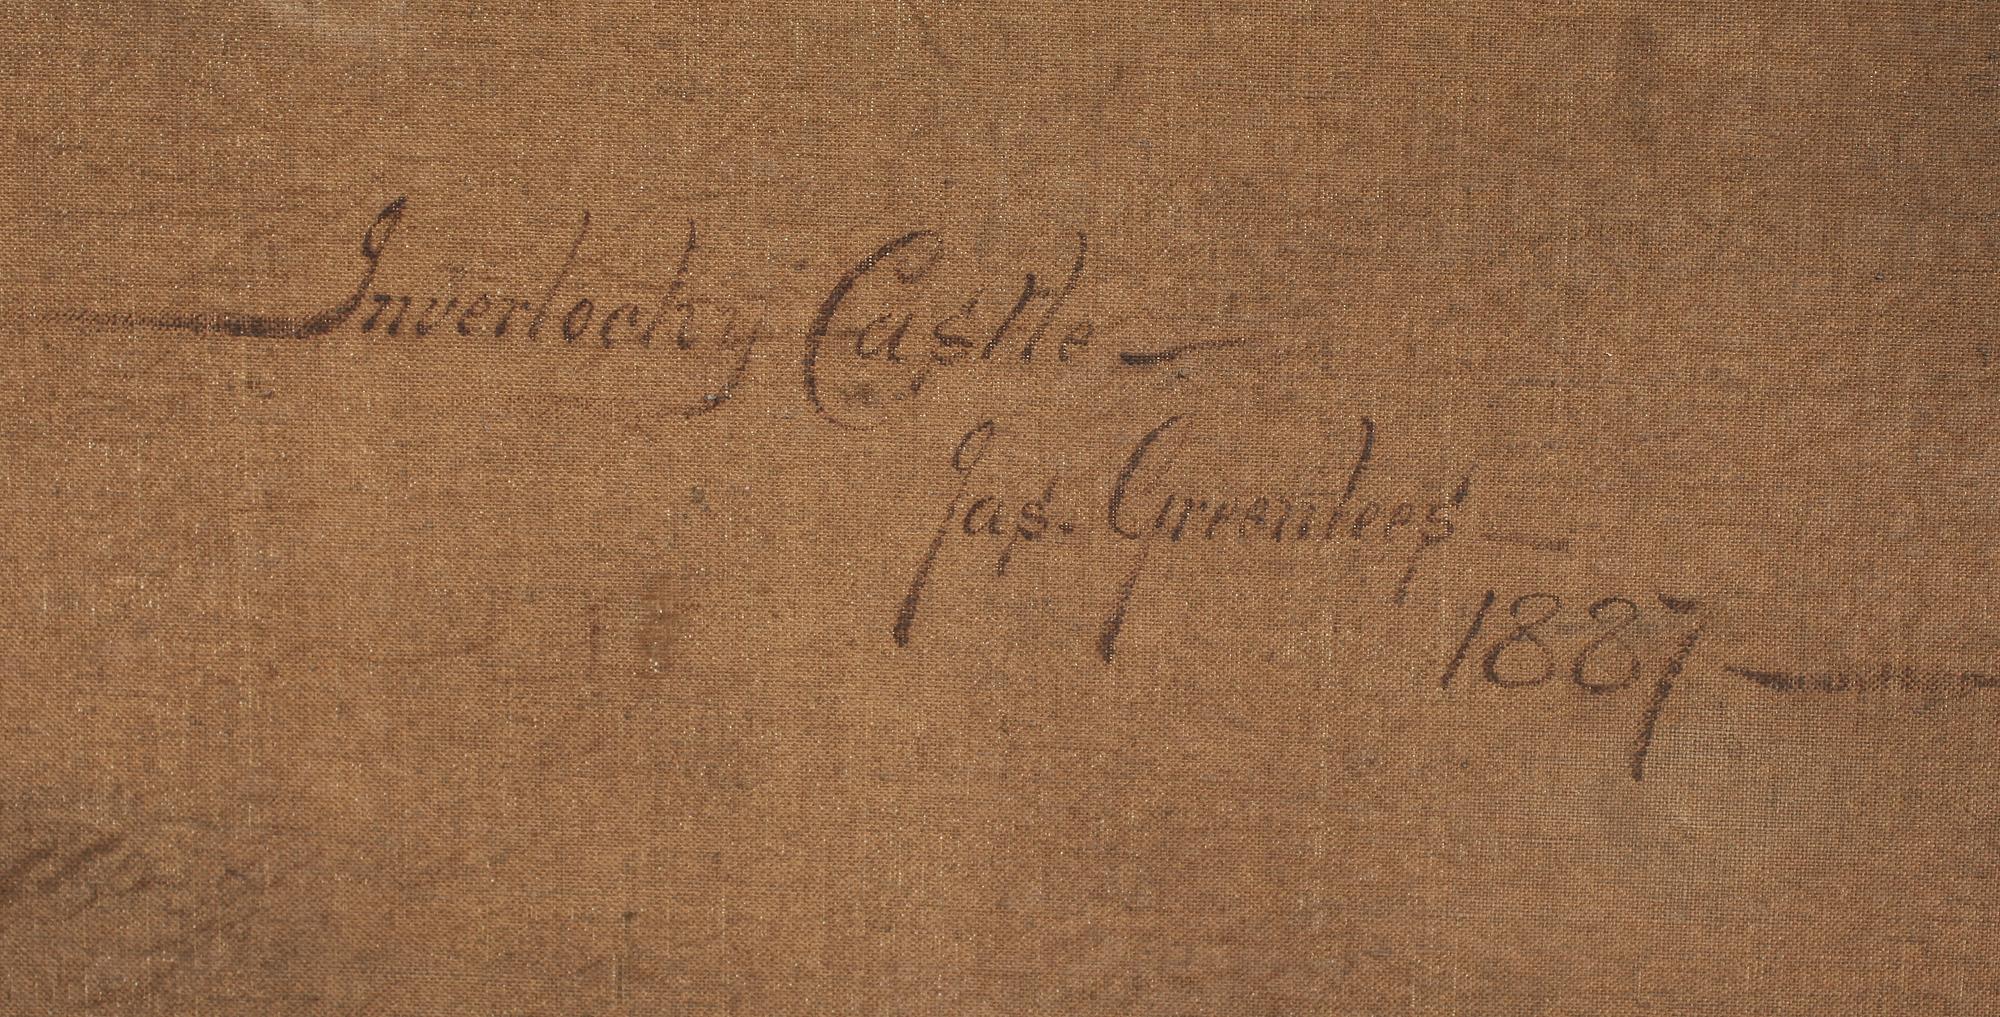 Inverlochy Castle —
Jas. Greenlees —
1887 —